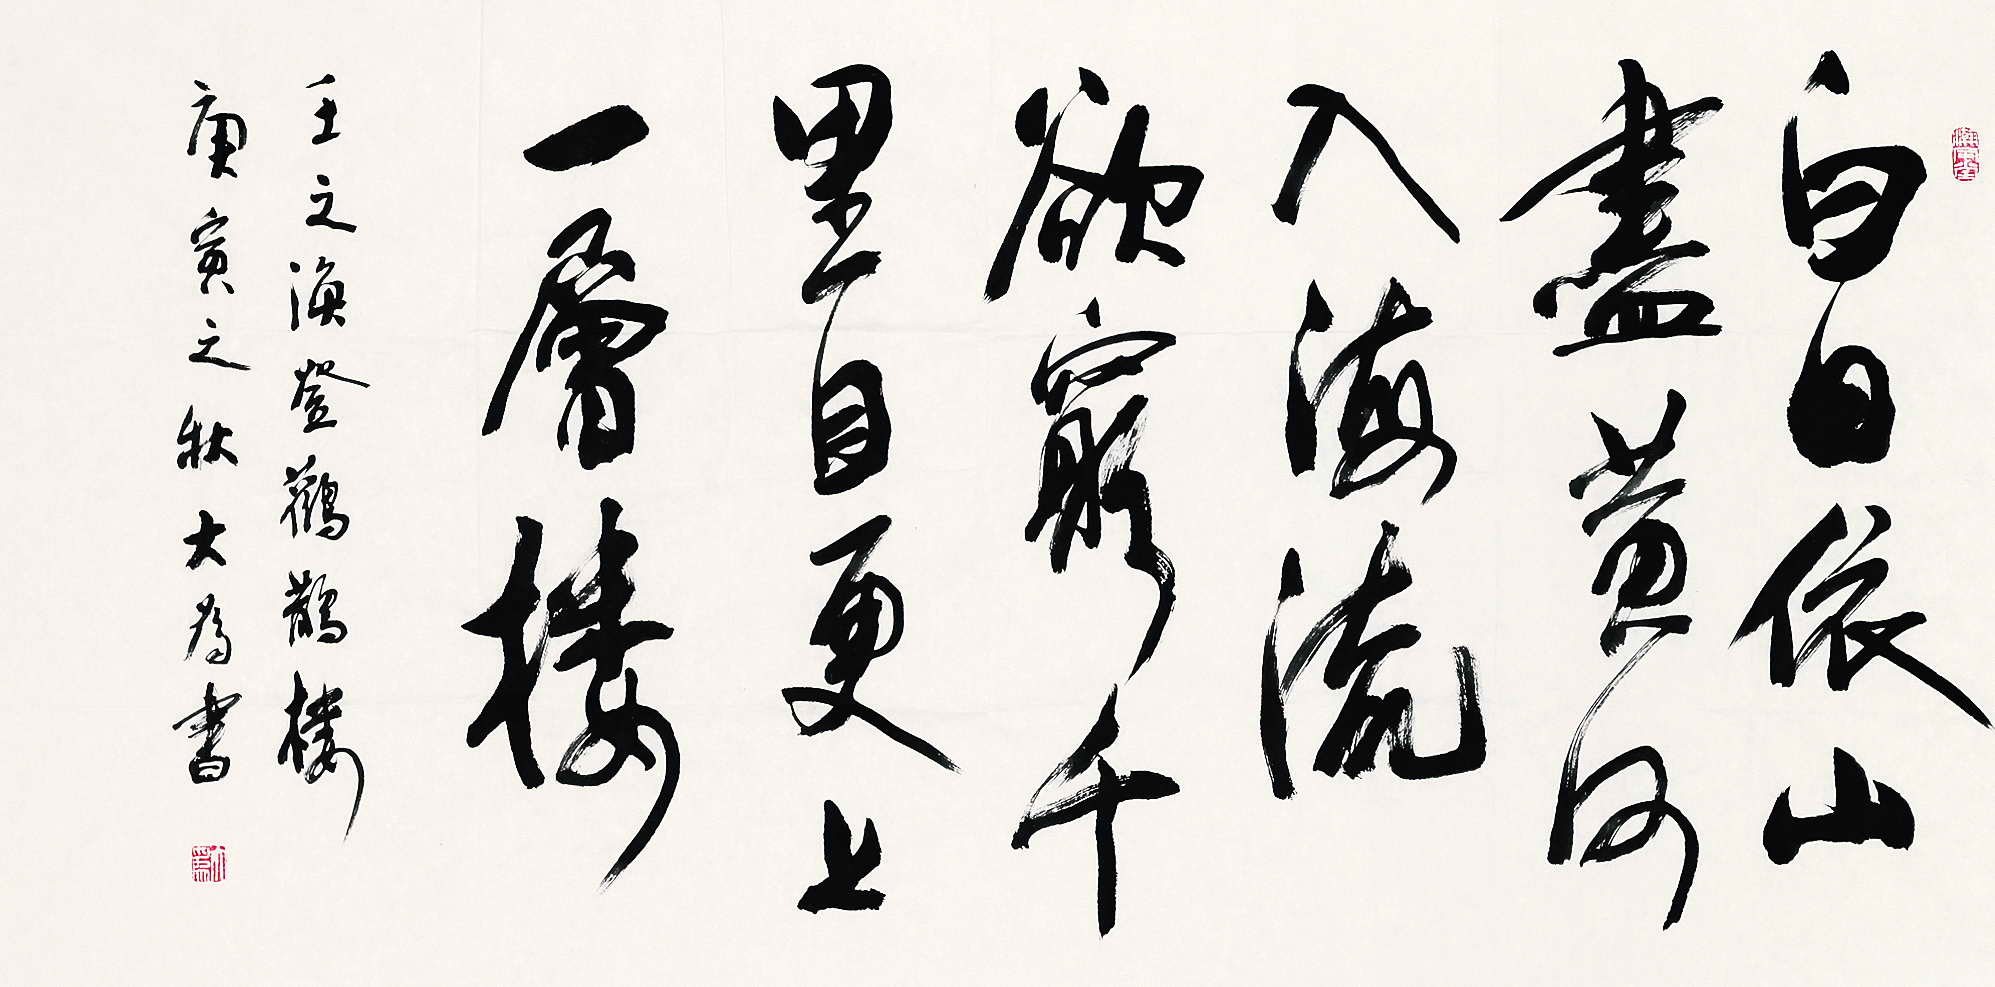 白日依山
盡黃河
入海流
欲窮千
里目更上
一層樓
王之渙登鸛鵲樓
庚寅之秋大為書